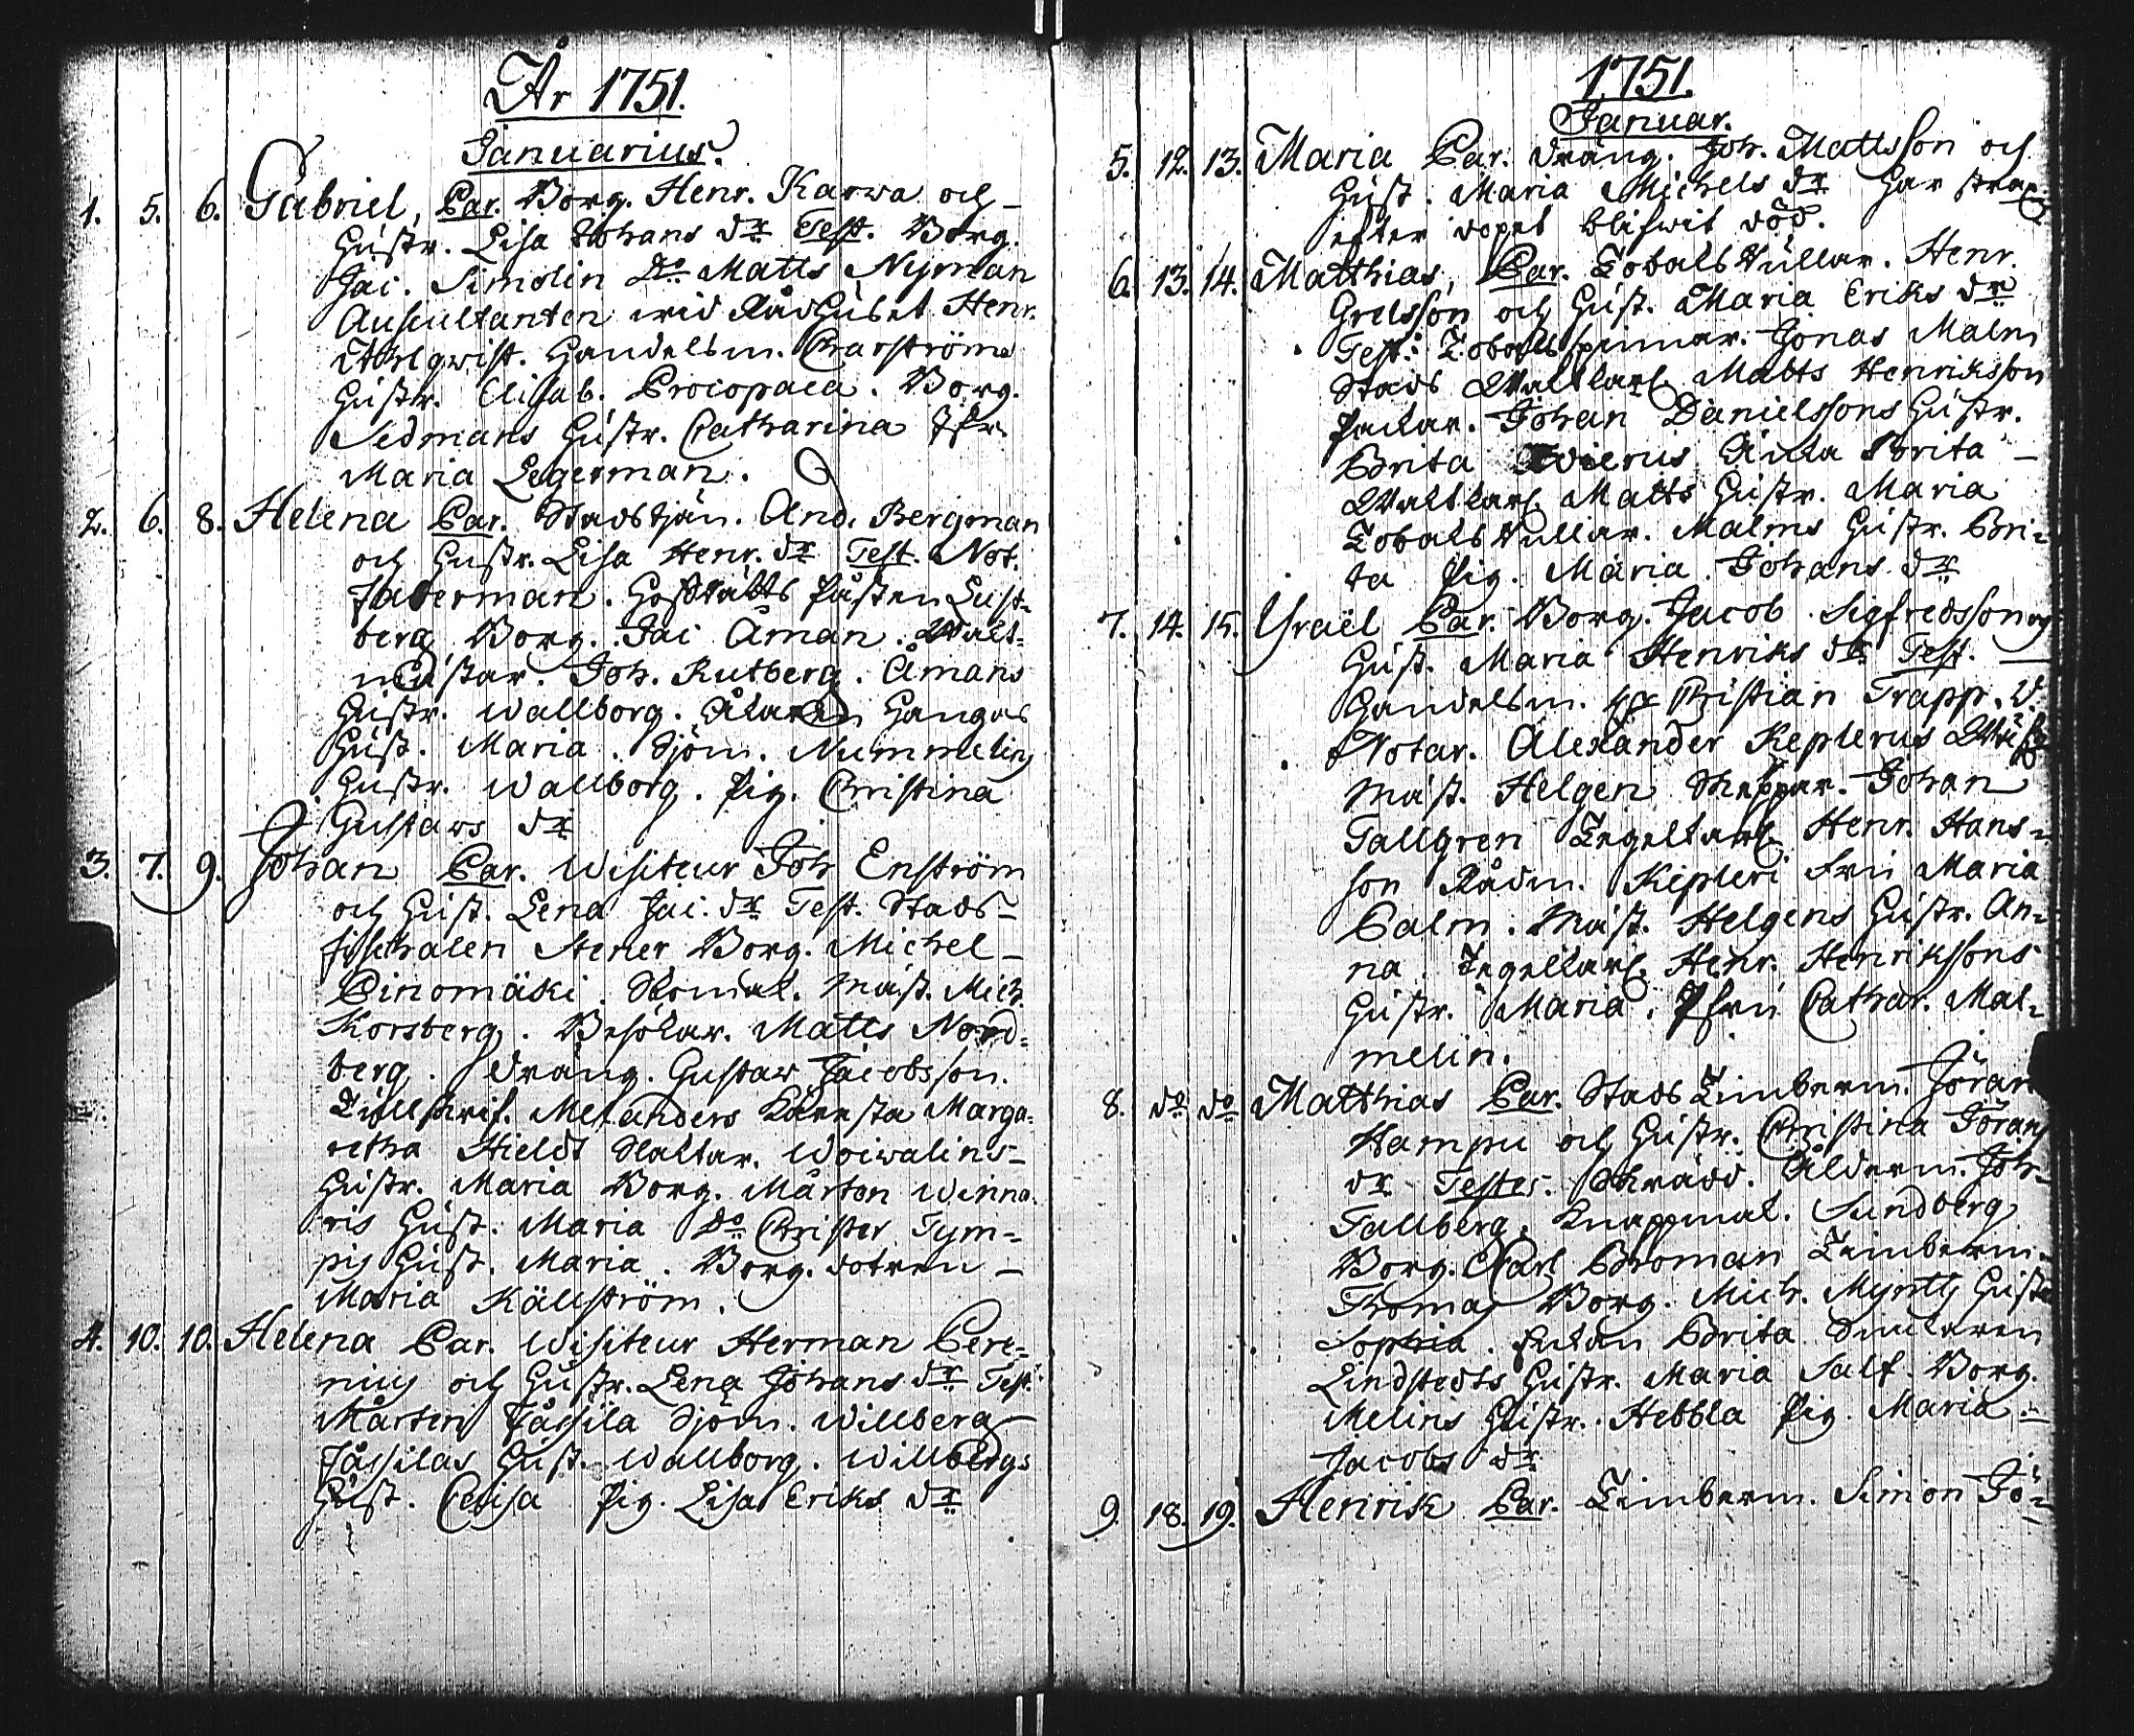 År 1751.
Januarius.
1. 5. 6. Gabriel, Par. Borg. Henr. Karwa och
hustr. Lisa Johans dr Test. Borg.
Jac. Simolin do Matts Nyman
Auscultanten wid Rådhuset Henr.
Ahlqwist. Handelsm. Charströms
hustr. Elisab. Procopaea. Borg.
Sedmans hustr. Catharina Jfr.
Maria Legerman.
2. 6. 8. Helena Par. Stadstjän. And. Bergman
och hustr. Lisa Henr. dr Test. Not.
Faderman. Lust-
berg Borg. Jac Åman. Wakt-
mästar. Joh. Rutberg. Åmans
hustr. Wallborg. Åkaren Hangas
hust. Maria. Sjöm. Nummelins
hustr. Wallborg. Pig. Christina
Gustavs dr
3. 7. 9. Johan Par. Visiteur Joh Enström
och hust. Lena Jac. dr Test. Stads-
fischalen Stener Borg. Michel
Pinomäki. Skomak. mäst. Mich.
Korsberg. Besökar. Matts Nord-
berg. dräng. Gustav Jacobsson.
Tullskrif. Melanders Käresta Marga-
retha Hieldt Woiwalins
hustr. Maria Borg. Mårten Winna-
ris hust. Maria do Christer Tym-
pis hust. Maria. Borg. dotren
Maria Källström.
4. 10. 10. Helena Par. Visiteur Herman Pere-
nius och hustr. Lena Johans dr Test.
Mårten Påssila Sjöm. Willberg
Påssilas hust. Wallborg. Willbergs
hust. Caisa Pig. Lisa Eriks dr
1751.
Januar.
5. 12. 13. Maria Par. dräng. Joh. Mattsson och
hust. Maria Michels dr har strax
efter dopet blifwit död.
6. 13. 14. Matthias, Par. Tobaks Rullar. Henr.
Grelsson och hust. Maria Eriks dr
Test: Tobaks spinnar. Jonas Malm
Stads Waktkarl Matts Henriksson
Packar. Johan Danielssons hustr.
Brita Enka Brita
Waktkarl. Matts hustr. Maria
Tobaks Rullar. Malms hustr. Bri-
ta Pig. Maria Johans dr
7. 14. 15. Israël Par. Borg. Jacob Sigfredsson och
hust. Maria Henriks dr Test.
Handelsm. Hr Christian Trapp. V.
Notar. Alexander Keplerus
mäst. Helgen Skeppar. Johan
Tallgren Tegelkarl Henr. Hans-
son Rådm. Kepleri Fru Maria
Palm. Mäst. Helgens hustr. An-
na. Tegelkarl. Henr. Henrikssons
hustr. Maria. Jfru Cathar. Mal-
melin.
8. do do Matthias Par. Stads Timberm. Jöran
Hampu och hustr. Christina Jörans
dr Testes. Skrädd. Ålderm. Joh.
Tallberg. Knappmak. Sundberg
Borg. Carl Broman Timberm.
Thomas Borg. Mich. Myntts hustr
Sophia. Enkan Brita
Lindstedts hustr. Maria Salt. Borg.
Melins hustr. Hebbla Pig Maria
Jacobs dr
9. 18. 19. Henrik Par. Timberm. Simon Jö-